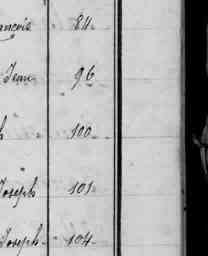 ançois 84.
Jean 96
100
Joseph 101.
Joseph. 104.